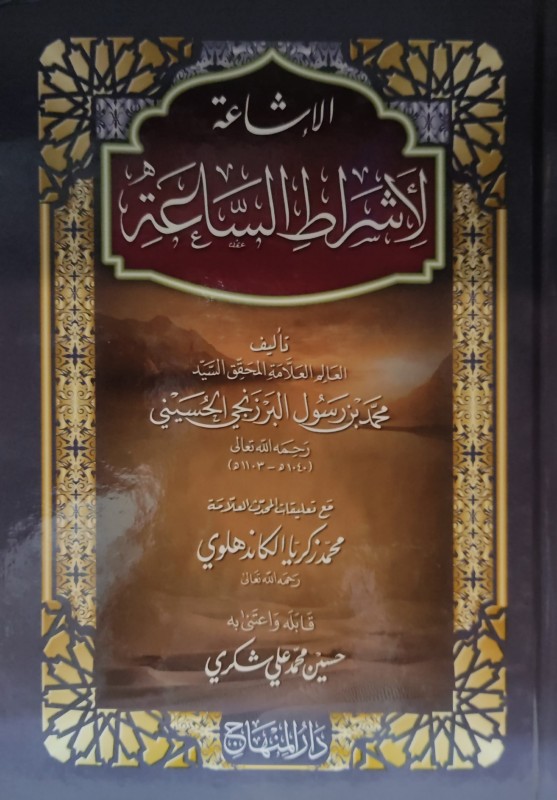 الإشاعة
لِأَشْرَاطِ السَّاعَةِ
تأليف
العالم العلّامة المحقق السيّد
محمّد بن رسول البرزنجي الحسيني
رحمه الله تعالى
(١٠٤٠ه - ١١٠٣ه)
مع تعليقات المحدث العلّامة
محمد زكريا الكاندهلوي
رحمه الله تعالى
قابله واعتنى به
حسين محمد علي شكري
دار المنهاج